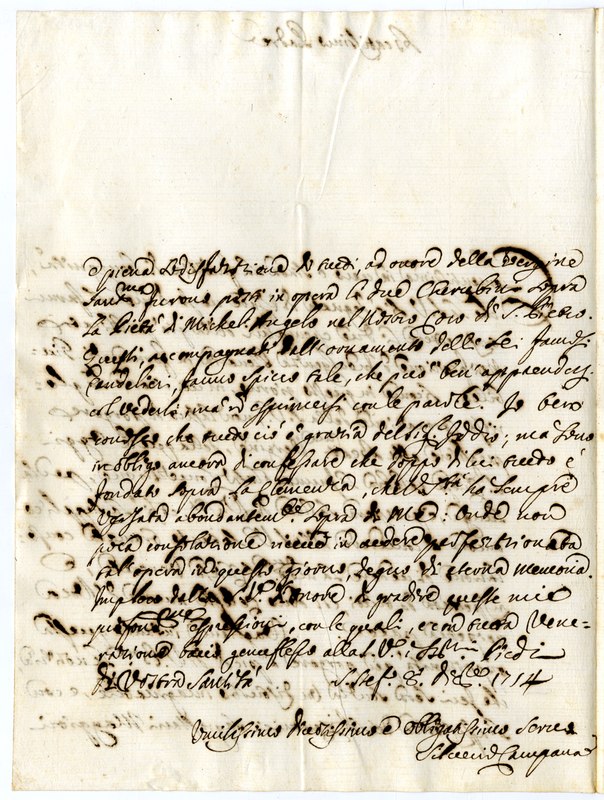 Beatissimo Padre
e piena sodisfazzione di tutti, ad onore della Vergine
Sant.ma furono posti in opera li due Cherubini sopra
la Pietà di Michel'Angelo nel Nostro Coro di S. Pietro.
Questi accompagnati dall'ornamento delle sei
Candelieri, fanno spicco tale, che può ben' apprendersi
col vederli, mà non esprimersi con le parole. Io bene
conosco che tutto ciò è grazia del Sig.re Iddio, mà sono
in obligo ancora di confessare che doppo di lui tutto è
fondato sopra la Clemenza, che V. S.tà hà sempre
usata abondantem.te sopra di me: Onde non
poca consolazione ricevo in vedere perfezzionata
tal' opera in questo giorno, degno di eterna memoria.
Imploro dalla S. V. l'onore di gradire queste mie
espressioni, con le quali, e con tutta Vene-
razione bacio genuflesso alla S. V. i S.mi Piedi
Di Vostra Santità S. Stef. 8. Dic.re 1714
Umilissimo Divotissimo e Obligatissimo Servo
Campana